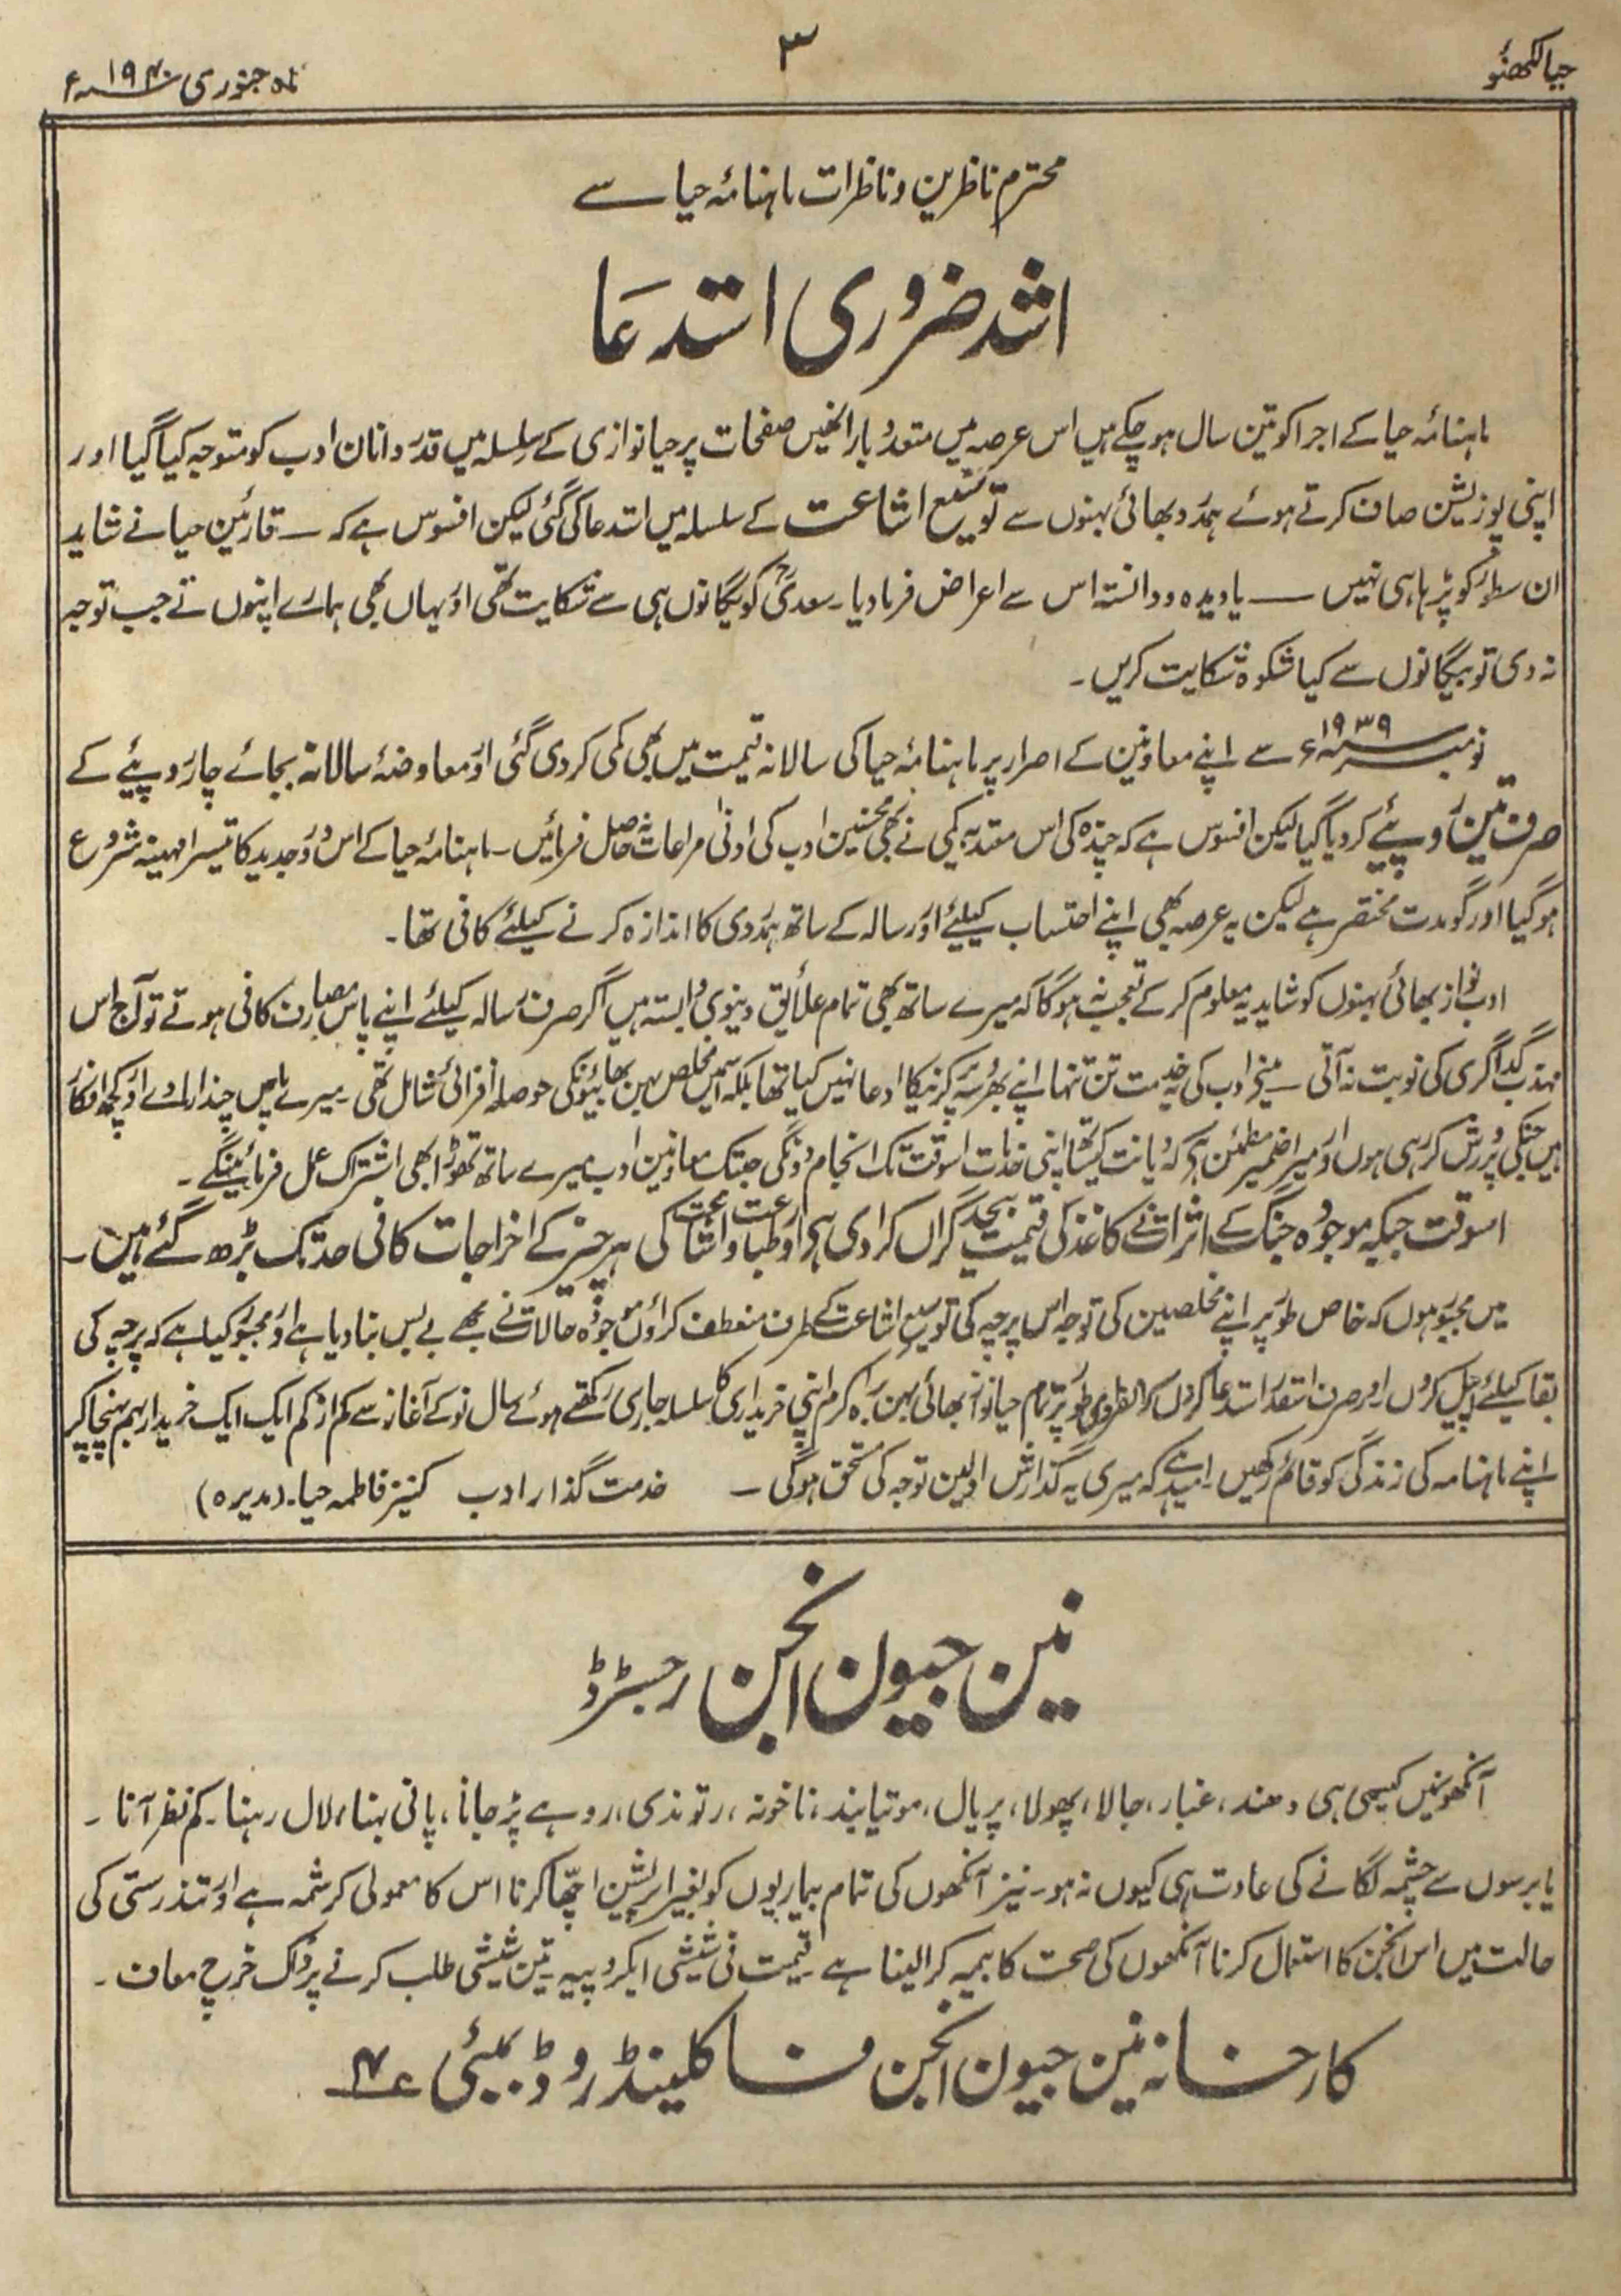 حیا لکھنؤ
۳
ماہ جنوری سنہ ۱۹۴۰ء
محترم ناظرین و ناظرات ماہنامہ حیا سے
اشد ضروری استدعا
ماہنامۂ حیا کے اجرا کو تین سال ہو چکے ہیں اس عرصہ میں متعدد بار انھیں صفحات پر حیا نوازی کے سلسلہ میں قدر دانان ادب کو متوجہ کیا گیا اور
اپنی پوزیشن صاف کرتے ہوئے ہمدرد بھائی بہنوں سے توسیع اشاعت کے سلسلہ میں استدعا کی گئی لیکن افسوس ہے کہ ــ قارئین حیا نے شاید
ان سطور کو پڑھا ہی نہیں ــــ یا دیدہ و دانستہ اس سے اعراض فرما دیا۔ سعدیؒ کو بیگانوں ہی سے شکایت تھی اور یہاں بھی ہمارے اپنوں نے جب توجہ
نہ دی تو بیگانوں سے کیا شکوہ شکایت کریں۔
نومبر سنہ ۱۹۳۹ء سے اپنے معاونین کے اصرار پر ماہنامۂ حیا کی سالانہ قیمت میں بھی کمی کر دی گئی اور معاوضۂ سالانہ بجائے چار روپئے کے
صرف تین روپئے کر دیا گیا لیکن افسوس ہے کہ چندہ کی اس معتدبہ کمی نے بھی محسنین ادب کی ادنیٰ مراعات حاصل فرمائیں۔ ماہنامۂ حیا کے اس دور جدید کا تیسرا مہینہ شروع
ہو گیا اور گو مدت مختصر ہے لیکن یہ عرصہ بھی اپنے احتساب کیلئے اور رسالہ کے ساتھ ہمدردی کا اندازہ کرنے کیلئے کافی تھا۔
ادب نواز بھائی بہنوں کو شاید یہ معلوم کر کے تعجب نہ ہو گا کہ میرے ساتھ بھی تمام علائق دنیوی وابستہ ہیں اگر صرف رسالہ کیلئے اپنے پاس مصارف کافی ہوتے تو آج اس
مہذب گداگری کی نوبت نہ آتی ــ میں نے خود ادب کی یہ خدمت تن تنہا اپنے بھروسہ پر کرنیکا ادعا نہیں کیا تھا بلکہ اسمیں مخلص بہن بھائیونکی حوصلہ افزائی شامل تھی۔ میرے پاس چند ارادے اور کچھ افکار
ہیں جنکی پرورش کر رہی ہوں اور میرا ضمیر مطمئن ہے کہ دیانت کیساتھ اپنی خدمات اسوقت تک انجام دونگی جبتک معاونین ادب میرے ساتھ تھوڑا بھی اشتراک عمل فرمائینگے۔
اسوقت جبکہ موجودہ جنگ کے اثرات نے کاغذ کی قیمت بیحد گراں کرا دی ہے اور طباعت و اشاعت کی ہر چیز کے اخراجات کافی حد تک بڑھ گئے ہیں۔
میں مجبور ہوں کہ خاص طور پر اپنے مخلصین کی توجہ اس پرچہ کی توسیع اشاعت کے طرف منعطف کراؤں موجودہ حالات نے مجھے بے بس بنا دیا ہے اور مجبور کیا ہے کہ پرچہ کی
بقا کیلئے اپیل کروں اور صرف اسقدر استدعا کروں کہ انفرادی طور پر تمام حیا نواز بھائی بہن براہ کرم اپنی خریداری کا سلسلہ جاری رکھتے ہوئے سال نو کے آغاز سے کم از کم ایک ایک خریدار بہم پہنچا کر
اپنے ماہنامہ کی زندگی کو قائم رکھیں۔ امید ہے کہ میری یہ گذارش اولین توجہ کی مستحق ہو گی ــ خدمت گذار ادب کنیز فاطمہ حیا۔ (مدیرہ)
نین جیون انجن رجسٹرڈ
آنکھونمیں کیسی ہی دھند، غبار، جالا، پھولا، پربال، موتیابند، ناخونہ، رتوندی، روہے پڑ جانا، پانی بہنا، لال رہنا۔ کم نظر آنا۔
یا برسوں سے چشمہ لگانے کی عادت ہی کیوں نہ ہو۔ نیز آنکھوں کی تمام بیماریوں کو بغیر اپریشن اچھا کرنا اس کا معمولی کرشمہ ہے اور تندرستی کی
حالت میں اس انجن کا استعمال کرنا آنکھوں کی صحت کا بیمہ کرا لینا ہے۔ قیمت فی شیشی ایکروپیہ۔ تین شیشی طلب کرنے پر ڈاک خرچ معاف۔
کارخانہ نین جیون انجن ۲ سا کلینڈ روڈ بمبئی ۴